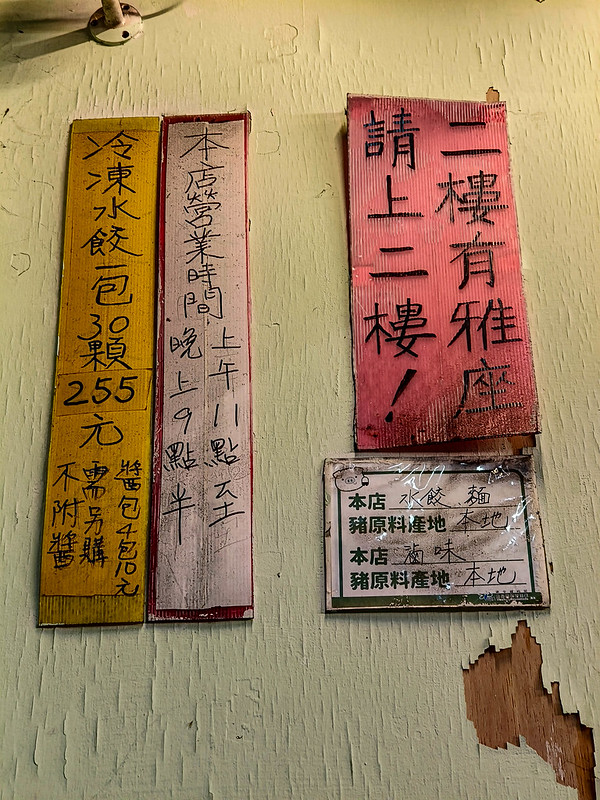 冷凍水餃一包30顆
255元
不附醬
需另購
醬包4包10元
本店營業時間
上午11點至
晚上9點半
二樓有雅座
請上二樓！
本店 水餃、麵
豬原料產地 本地
本店 滷味
豬原料產地 本地